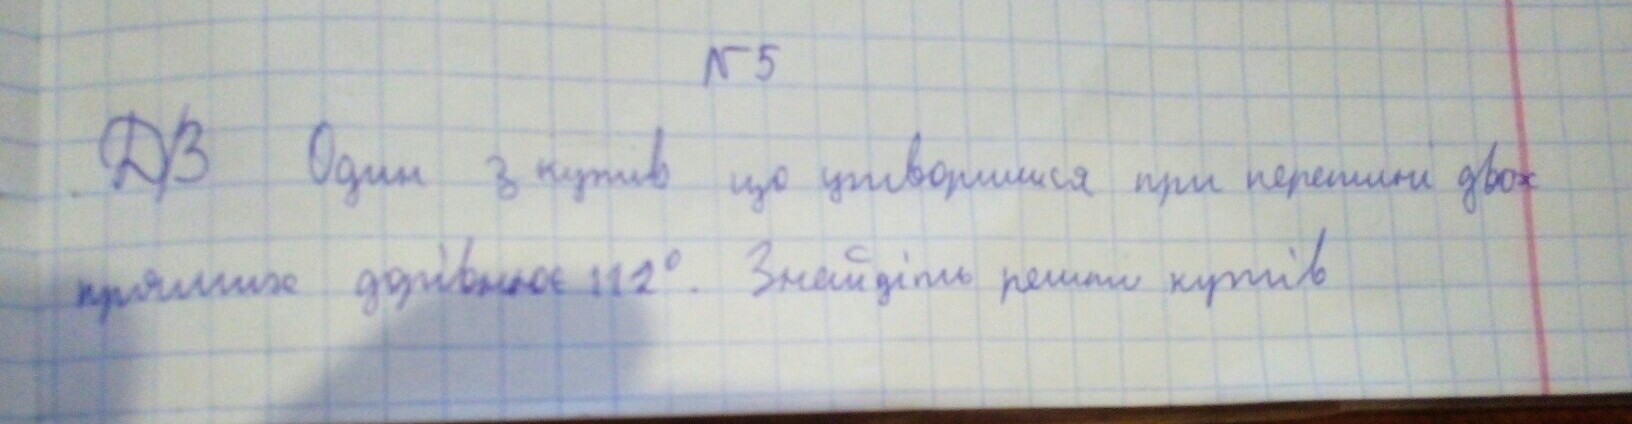 №5
ДЗ Один з кутів що утворилися при перетині двох
прямих дорівнює 112°. Знайдіть решти кутів